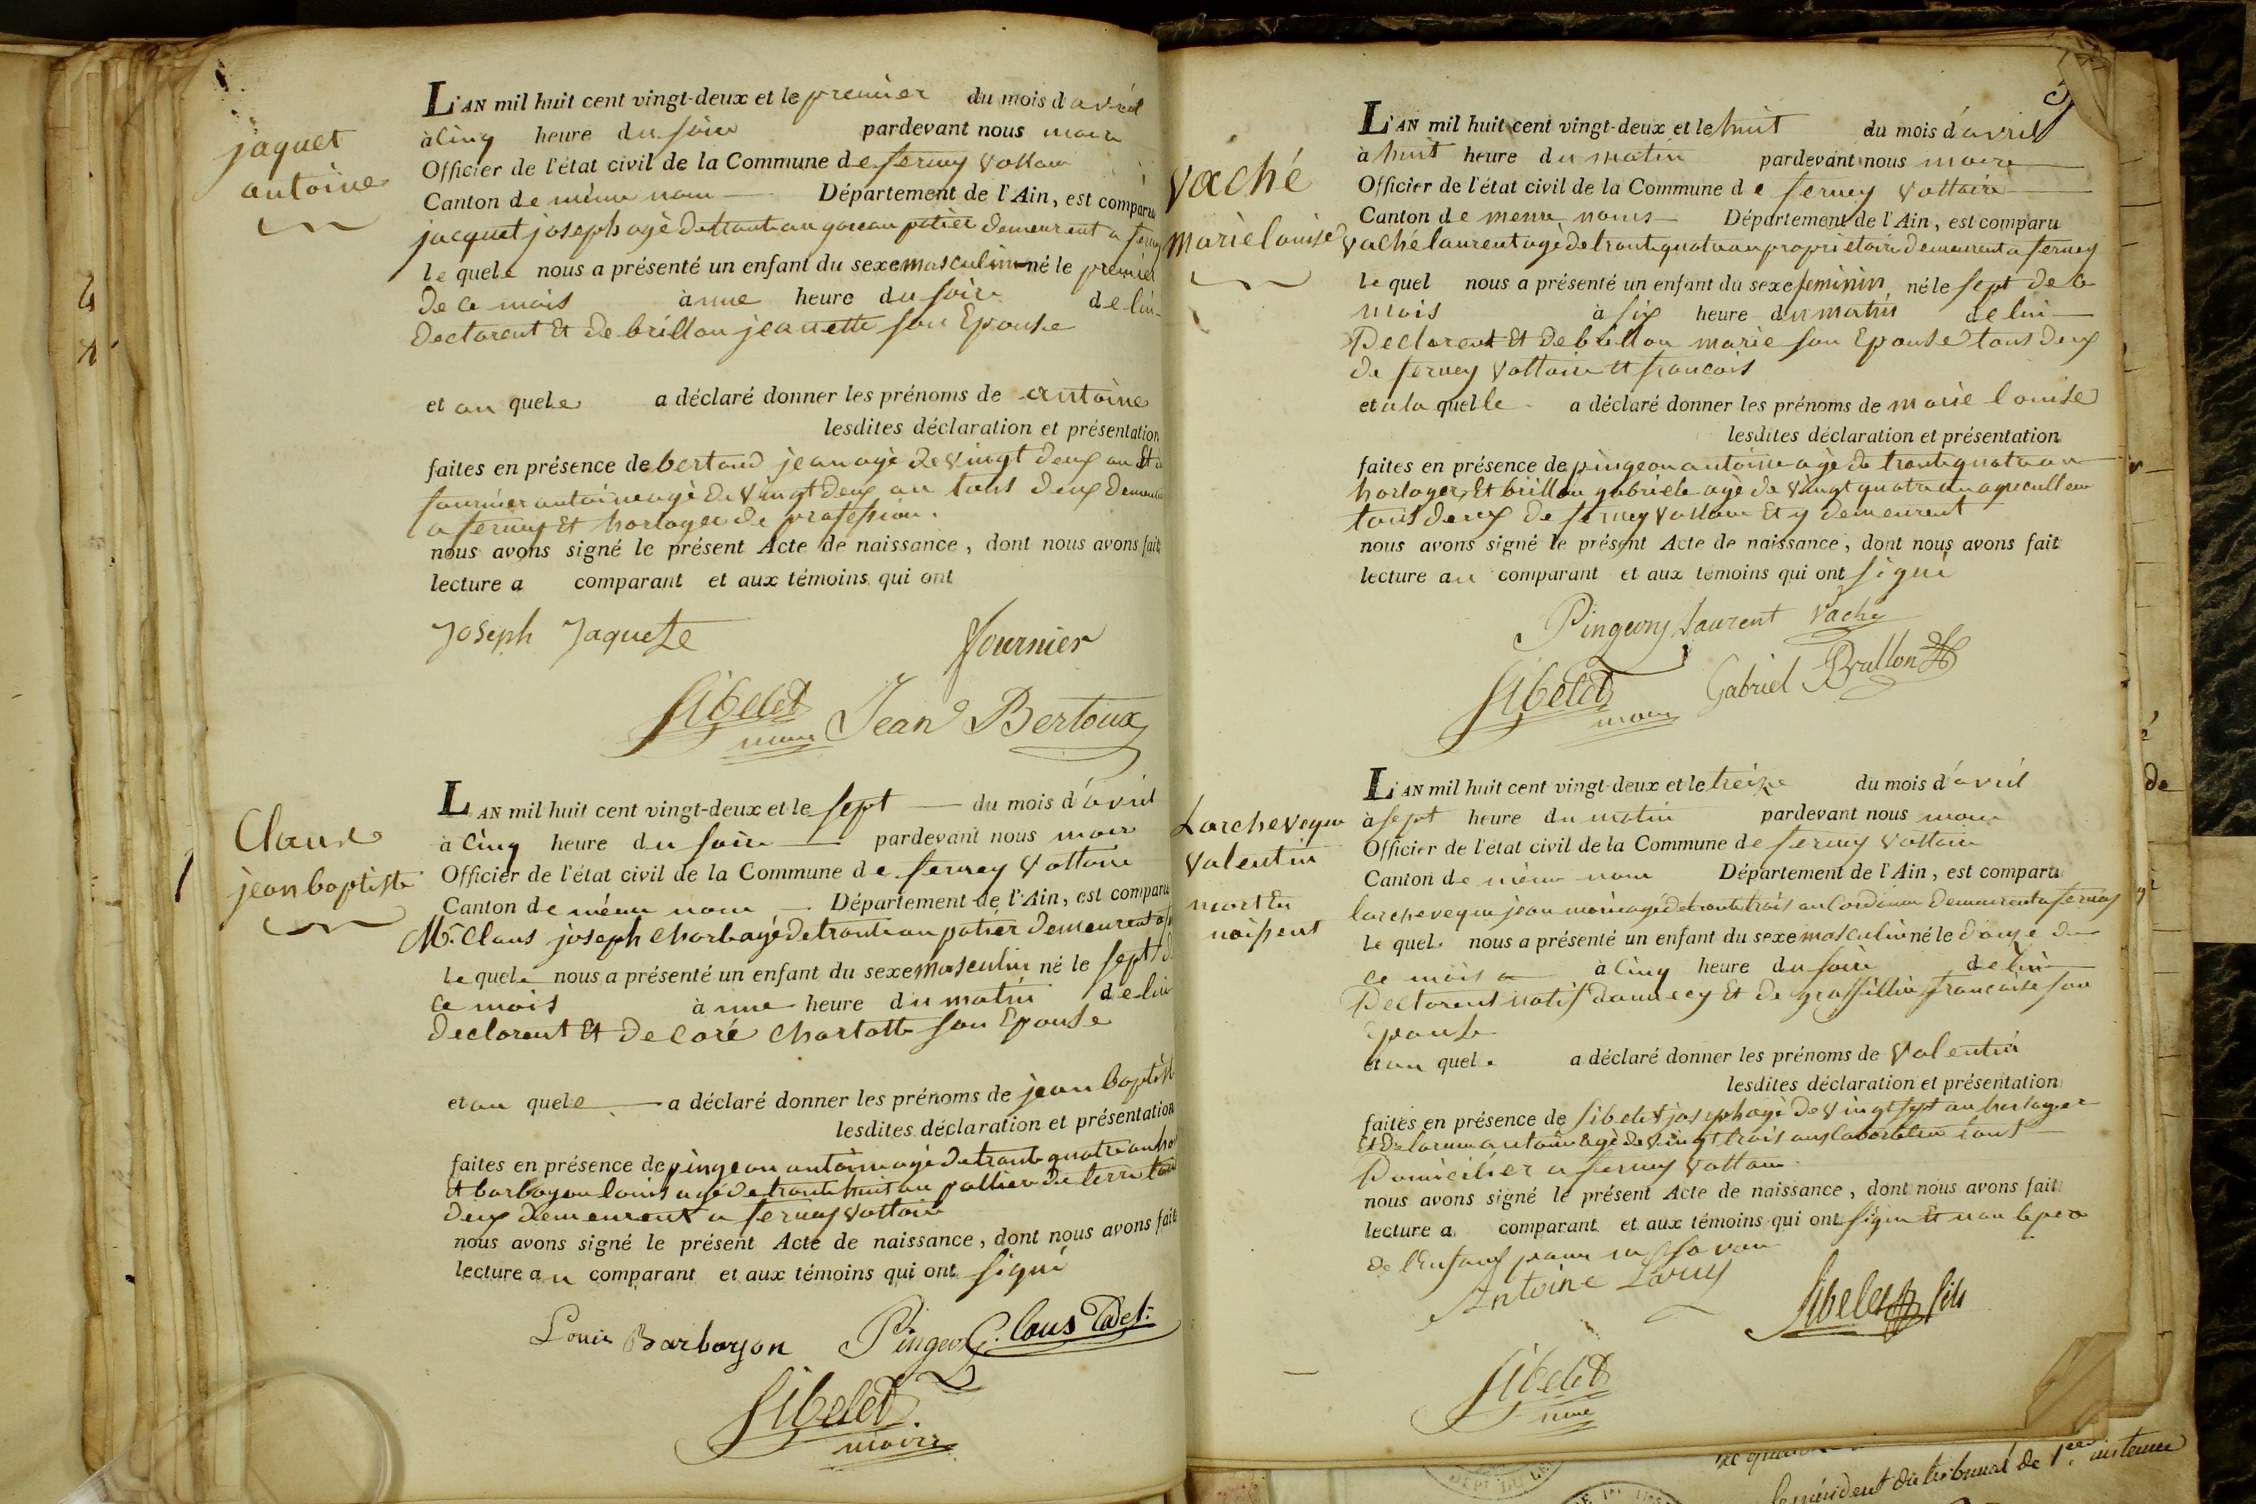 jaquet
antoine
L'AN mil huit cent vingt-deux et le premier du mois d'avril
à Cinq heure du soire pardevant nous maire
Officier de l'état civil de la Commune de ferney Voltaire
Canton de même nom Département de l'Ain, est comparu
jacquet joseph agè de trante an potier demeurent a ferney
le quele nous a présenté un enfant du sexe masculin né le premier
de ce mois à une heure du soire de lui
declarent Et de brillon jeanette son Epouse
et au quele a déclaré donner les prénoms de antoine
lesdites déclaration et présentation
faites en présence de bertoud jean agè de vingt deux an Et de
fournier antoine agè de vingt deux an tous deux demeurent
a ferney Et horloger de profession.
nous avons signé le présent Acte de naissance, dont nous avons fait
lecture a comparant et aux témoins qui ont
Joseph Jaquete fournier
Sibelet maire Jean Bertoux
Claus
jean baptiste
L'AN mil huit cent vingt-deux et le sept du mois d'avril
à Cinq heure du soire pardevant nous maire
Officier de l'état civil de la Commune de ferney Voltaire
Canton de même nom Département de l'Ain, est comparu
Mr. Claus joseph agé de trante an potier demeurent a
le quele nous a présenté un enfant du sexe masculin né le sept de
ce mois à une heure du matin de lui
declarent Et de coré charlotte son Epouse
et au quele a déclaré donner les prénoms de jean baptiste
lesdites déclaration et présentation
faites en présence de pingeon antoine agé de trante quatre an
Et barbayon louis agé de trante huit an pottier de terre tous
deux demeurent a ferney Voltaire
nous avons signé le présent Acte de naissance, dont nous avons fait
lecture au comparant et aux témoins qui ont signé
Louis Barbayon Pingeon C. Claus Cadet
Sibelet
maire
Vaché
marie louise
L'AN mil huit cent vingt-deux et le huit du mois d'avril
à huit heure du matin pardevant nous maire
Officier de l'état civil de la Commune de ferney Voltaire
Canton de meme noms Département de l'Ain, est comparu
vaché laurent agè de trante quatre an propriétaire demeurent a ferney
le quel nous a présenté un enfant du sexe feminin né le sept de ce
mois à six heure du matin de lui
Declarent Et de brillon marie son Epouse tous deux
de ferney Voltaire et francois
et a la quelle a déclaré donner les prénoms de marie louise
lesdites déclaration et présentation
faites en présence de pingeon antoine agè de trante quatre an
horloger, Et brillon gabriele agè de vingt quatre an agriculteur
tous deux de ferney Voltaire Et y demeurent
nous avons signé le présent Acte de naissance, dont nous avons fait
lecture au comparant et aux témoins qui ont signé
Pingeon Laurent vaché
Sibelet maire Gabriel Brillon
Larcheveque
Valentin
mort en
naissent
L'AN mil huit cent vingt-deux et le treize du mois d'avril
à sept heure du matin pardevant nous maire
Officier de l'état civil de la Commune de ferney Voltaire
Canton de même nom Département de l'Ain, est comparu
larcheveque jean agé de trante trois an Cordonier demeurent a ferney
le quel nous a présenté un enfant du sexe masculin né le douze de
ce mois à Cinq heure du soire de lui
Declarent natif d'annecy Et de francaise son
Epouse
et au quel a déclaré donner les prénoms de Valentin
lesdites déclaration et présentation
faites en présence de Sibelet joseph agé de vingt sept an horloger
Et antoine agé de vingt trois ans tous
Domicilier a ferney Voltaire
nous avons signé le présent Acte de naissance, dont nous avons fait
lecture a comparant et aux témoins qui ont signé Et non le pere
de l'Enfant pour ne savoir
Antoine Sibelet fils
Sibelet
maire
le président du tribunal de 1ere instance